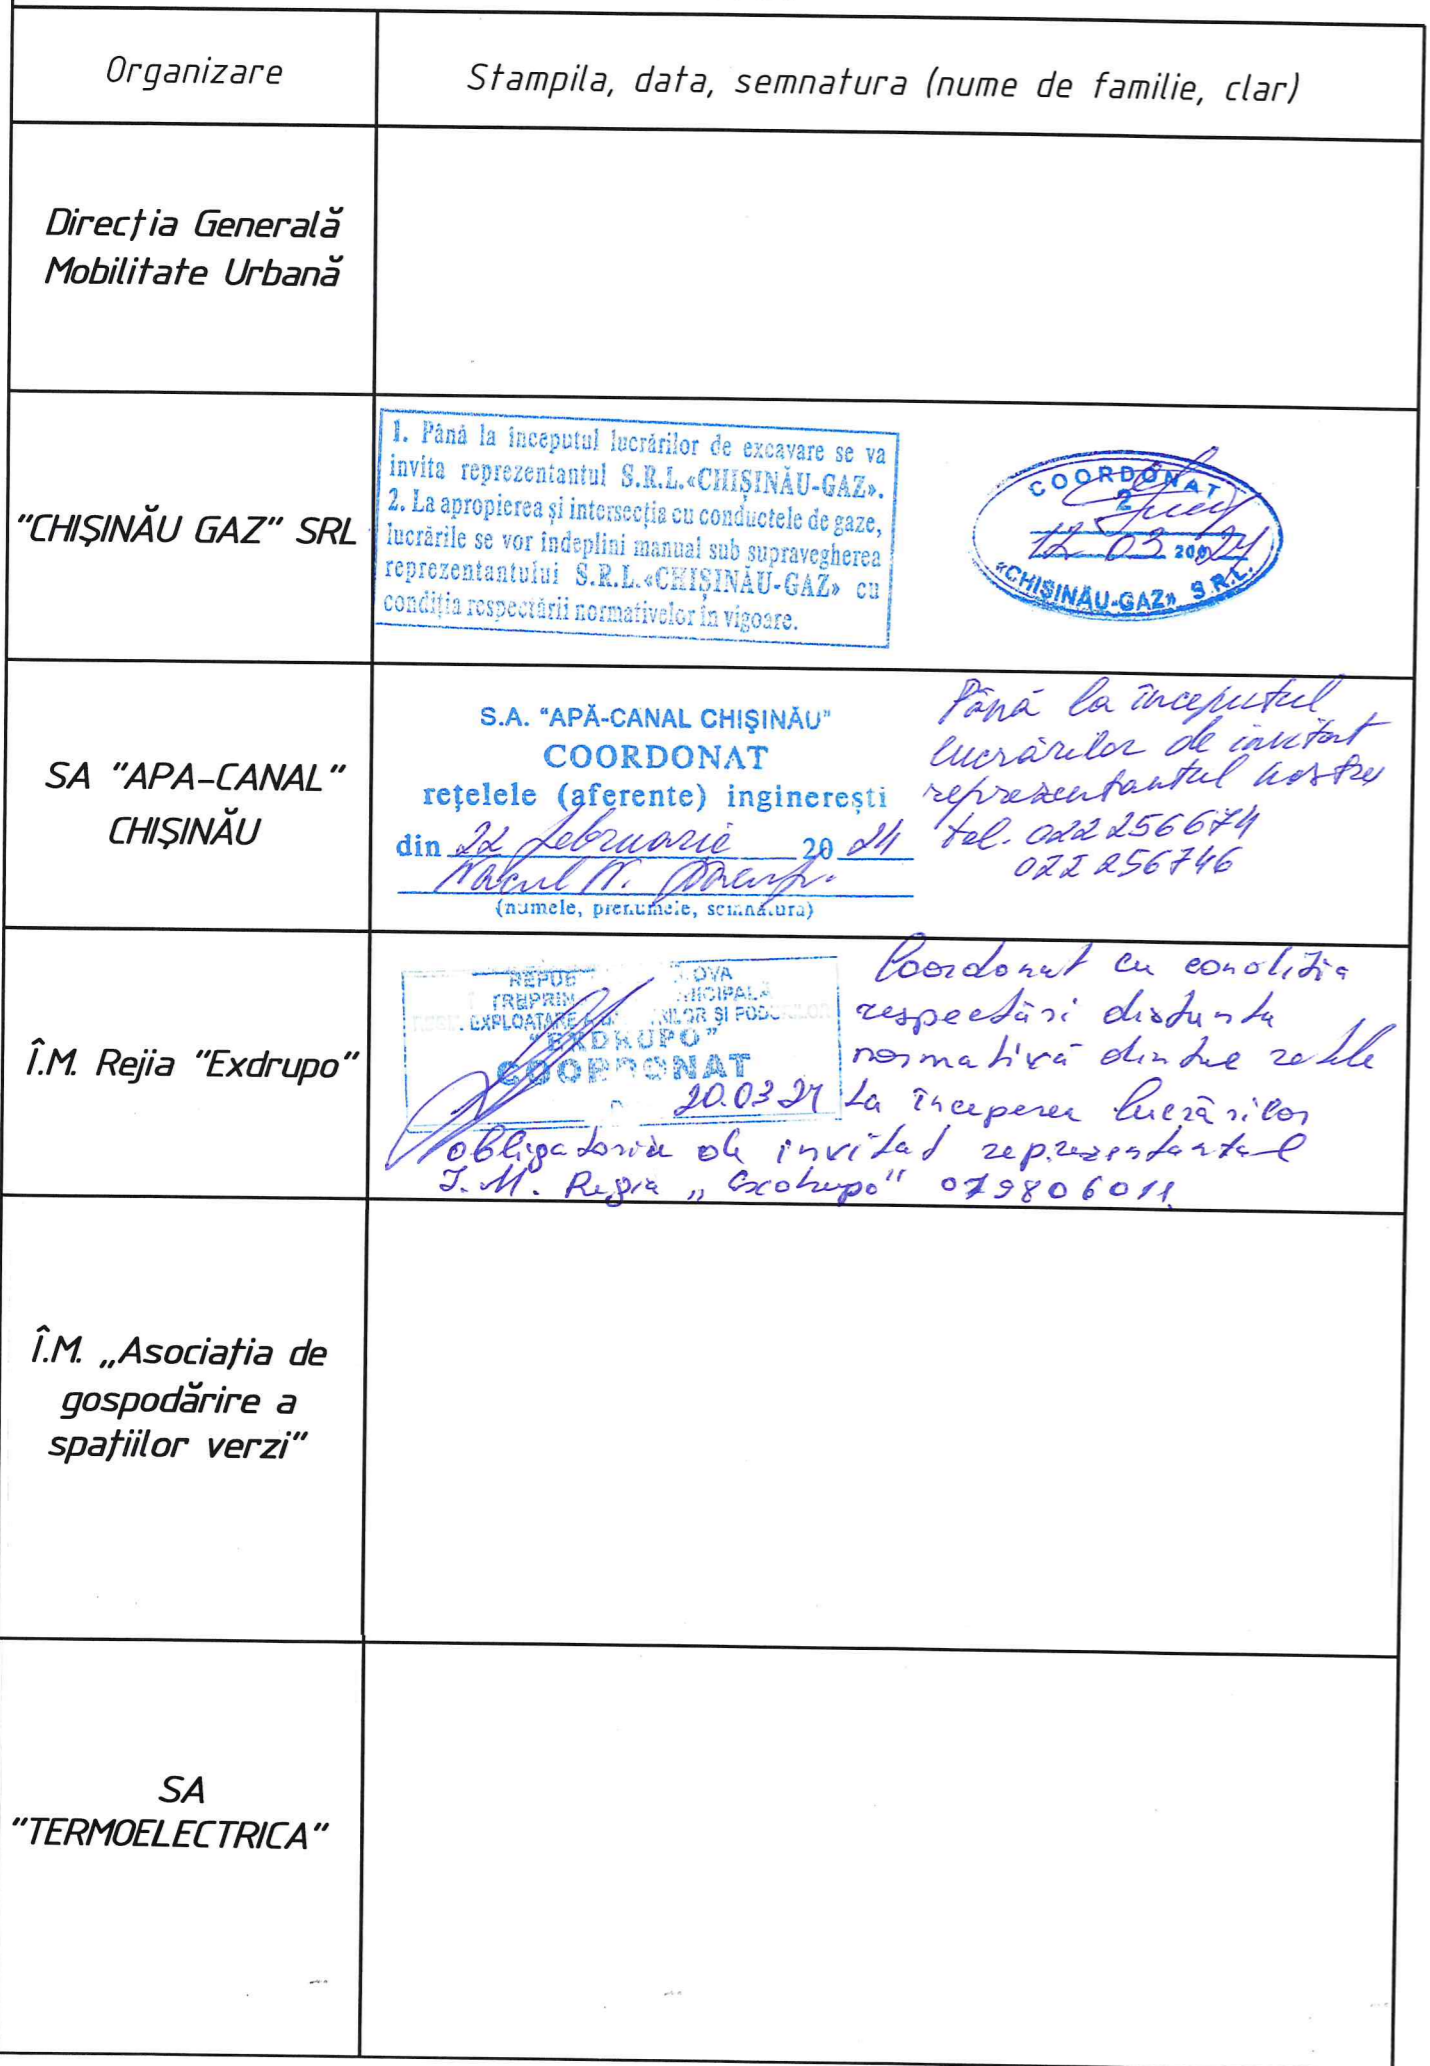 Organizare
Stampila, data, semnatura (nume de familie, clar)
Direcția Generală
Mobilitate Urbană
"CHIȘINĂU GAZ" SRL
1. Până la începutul lucrărilor de excavare se va
invita reprezentantul S.R.L.«CHIȘINĂU-GAZ».
2. La apropierea și intersecția cu conductele de gaze,
lucrările se vor îndeplini manual sub supravegherea
reprezentantului S.R.L.«CHIȘINĂU-GAZ» cu
condiția respectării normativelor în vigoare.
COORDONAT
2
12 03 200 24
«CHIȘINĂU-GAZ» S.R.L.
SA "APA-CANAL"
CHIȘINĂU
S.A. "APĂ-CANAL CHIȘINĂU"
COORDONAT
rețelele (aferente) inginerești
din 22 februarie 20 24
N.
(numele, prenumele, semnătura)
Până la începutul
lucrărilor de invitat
reprezentantul nostru
tel. 022 256674
022 256746
Î.M. Rejia "Exdrupo"
REPUB OVA
TREPRIN NICIPALĂ
EXPLOATARE A D ILOR ȘI PODURILOR
"EXDRUPO"
COORDONAT
20.03 24
Coordonat cu condiția
respectări distanta
normativă dintre retele
La începerea lucrărilor
obligatoriu de invitat reprezentantul
Î.M. Regia „Exdrupo" 079806011
Î.M. „Asociația de
gospodărire a
spațiilor verzi"
SA
"TERMOELECTRICA"